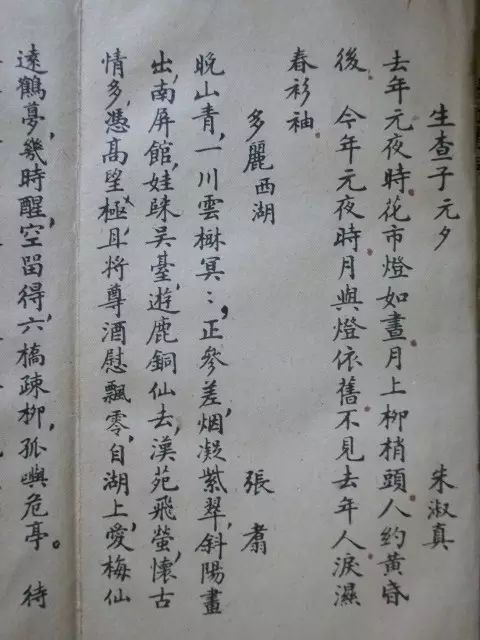 生查子元夕 朱淑真
去年元夜時花市燈如晝月上柳梢頭人約黃昏
後 今年元夜時月與燈依舊不見去年人淚濕
春衫袖
多麗西湖 張翥
晚山青,一川雲樹冥:,正參差烟凝紫翠,斜陽畫
出,南屏館,娃歸吴臺,遊鹿銅仙去,漢苑飛螢,懷古
情多,憑高望極,且將尊酒慰飄零,自湖上,愛梅仙
遠鶴夢,幾時醒,空留得,六橋疎柳,孤嶼危亭。 待